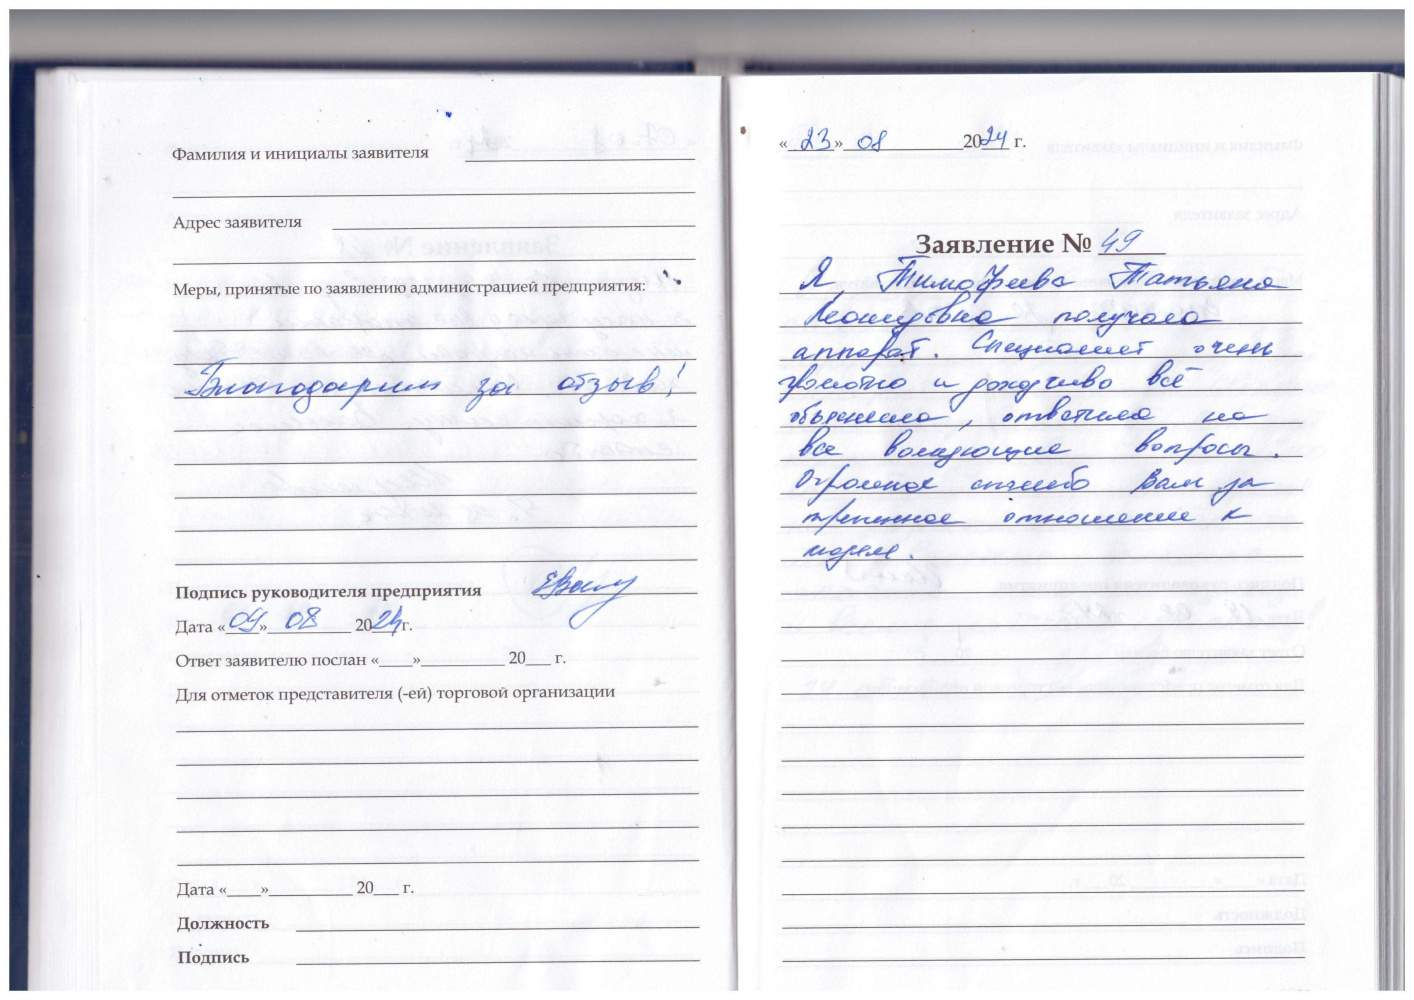 Фамилия и инициалы заявителя
Адрес заявителя
Меры, принятые по заявлению администрацией предприятия:
Благодарим за отзыв!
Подпись руководителя предприятия
Дата «09» 08 2024 г.
Ответ заявителю послан «____»__________ 20___ г.
Для отметок представителя (-ей) торговой организации
Дата «____»__________ 20___ г.
Должность
Подпись
«23» 08 2024 г.
Заявление № 49
Я Тимофеева Татьяна
Леонидовна получала
аппарат. Специалист очень
грамотно и доходчиво всё
объяснила, ответила на
все волнующие вопросы.
Огромное спасибо Вам за
трепетное отношение к
людям.